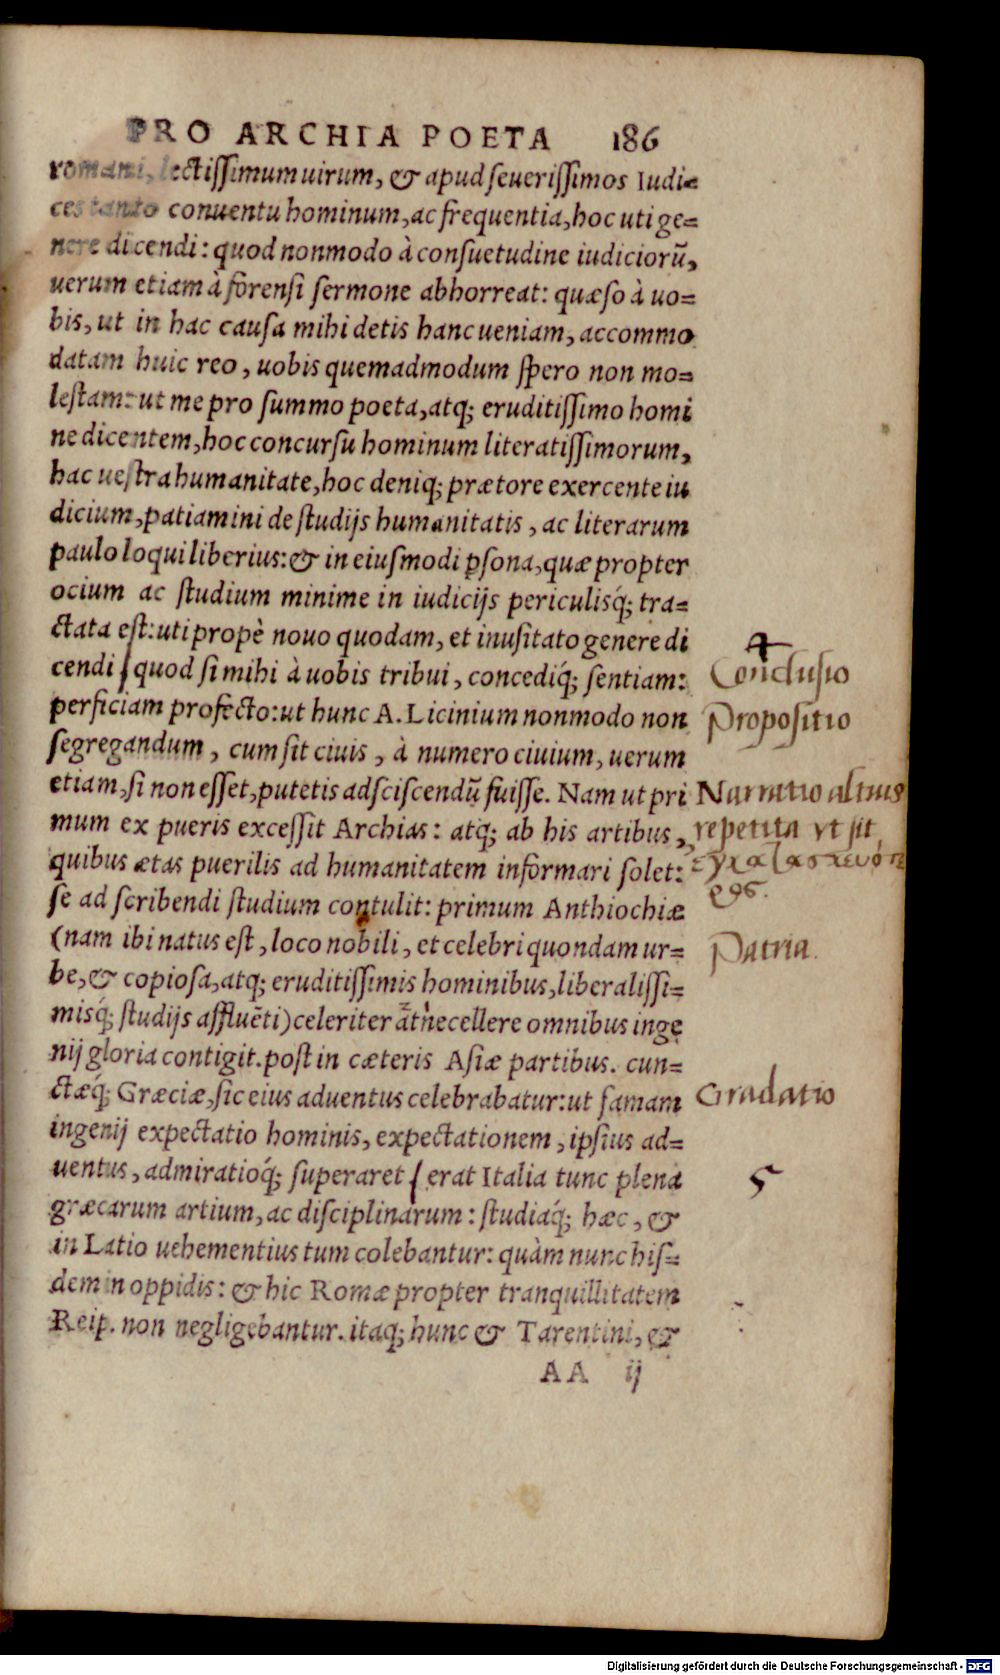 PRO ARCHIA POETA 186
romani, lectissimum uirum, & apud seuerissimos Iudi=
ces tanto conuentu hominum, ac frequentia, hoc uti ge=
nere dicendi: quod nonmodo à consuetudine iudiciorũ,
uerum etiam à forensi sermone abhorreat: quæso à uo=
bis, ut in hac causa mihi detis hanc ueniam, accommo
datam huic reo, uobis quemadmodum spero non mo=
lestam: ut me pro summo poeta, atq; eruditissimo homi
ne dicentem, hoc concursu hominum literatissimorum,
hac uestra humanitate, hoc deniq; prætore exercente iu
dicium, patiamini de studijs humanitatis, ac literarum
paulo loqui liberius: & in eiusmodi ꝑsona, quæ propter
ocium ac studium minime in iudicijs periculisq́; tra=
ctata est: uti propè nouo quodam, et inusitato genere di
cendi quod si mihi à uobis tribui, concediq́; sentiam:
perficiam profecto: ut hunc A. Licinium nonmodo non
segregandum, cum sit ciuis, à numero ciuium, uerum
etiam, si non esset, putetis adsciscendũ fuisse. Nam ut pri
mum ex pueris excessit Archias: atq; ab his artibus,
quibus ætas puerilis ad humanitatem informari solet:
se ad scribendi studium contulit: primum Anthiochiæ
(nam ibi natus est, loco nobili, et celebri quondam ur=
be, & copiosa, atq; eruditissimis hominibus, liberalissi=
misq́; studijs affluẽti) celeriter antecellere omnibus inge
nij gloria contigit. post in cæteris Asiæ partibus. cun=
ctæq́; Græciæ, sic eius aduentus celebrabatur: ut famam
ingenij expectatio hominis, expectationem, ipsius ad=
uentus, admiratioq́; superaret erat Italia tunc plena
græcarum artium, ac disciplinarum: studiaq́; hæc, &
in Latio uehementius tum colebantur: quàm nunc his=
dem in oppidis: & hic Romæ propter tranquillitatem
Reip. non negligebantur. itaq; hunc & Tarentini, &
AA ij
4
Conclusio
Propositio
Narratio altius
repetita vt sit
Patria.
Gradatio
5
Digitalisierung gefördert durch die Deutsche Forschungsgemeinschaft - DFG